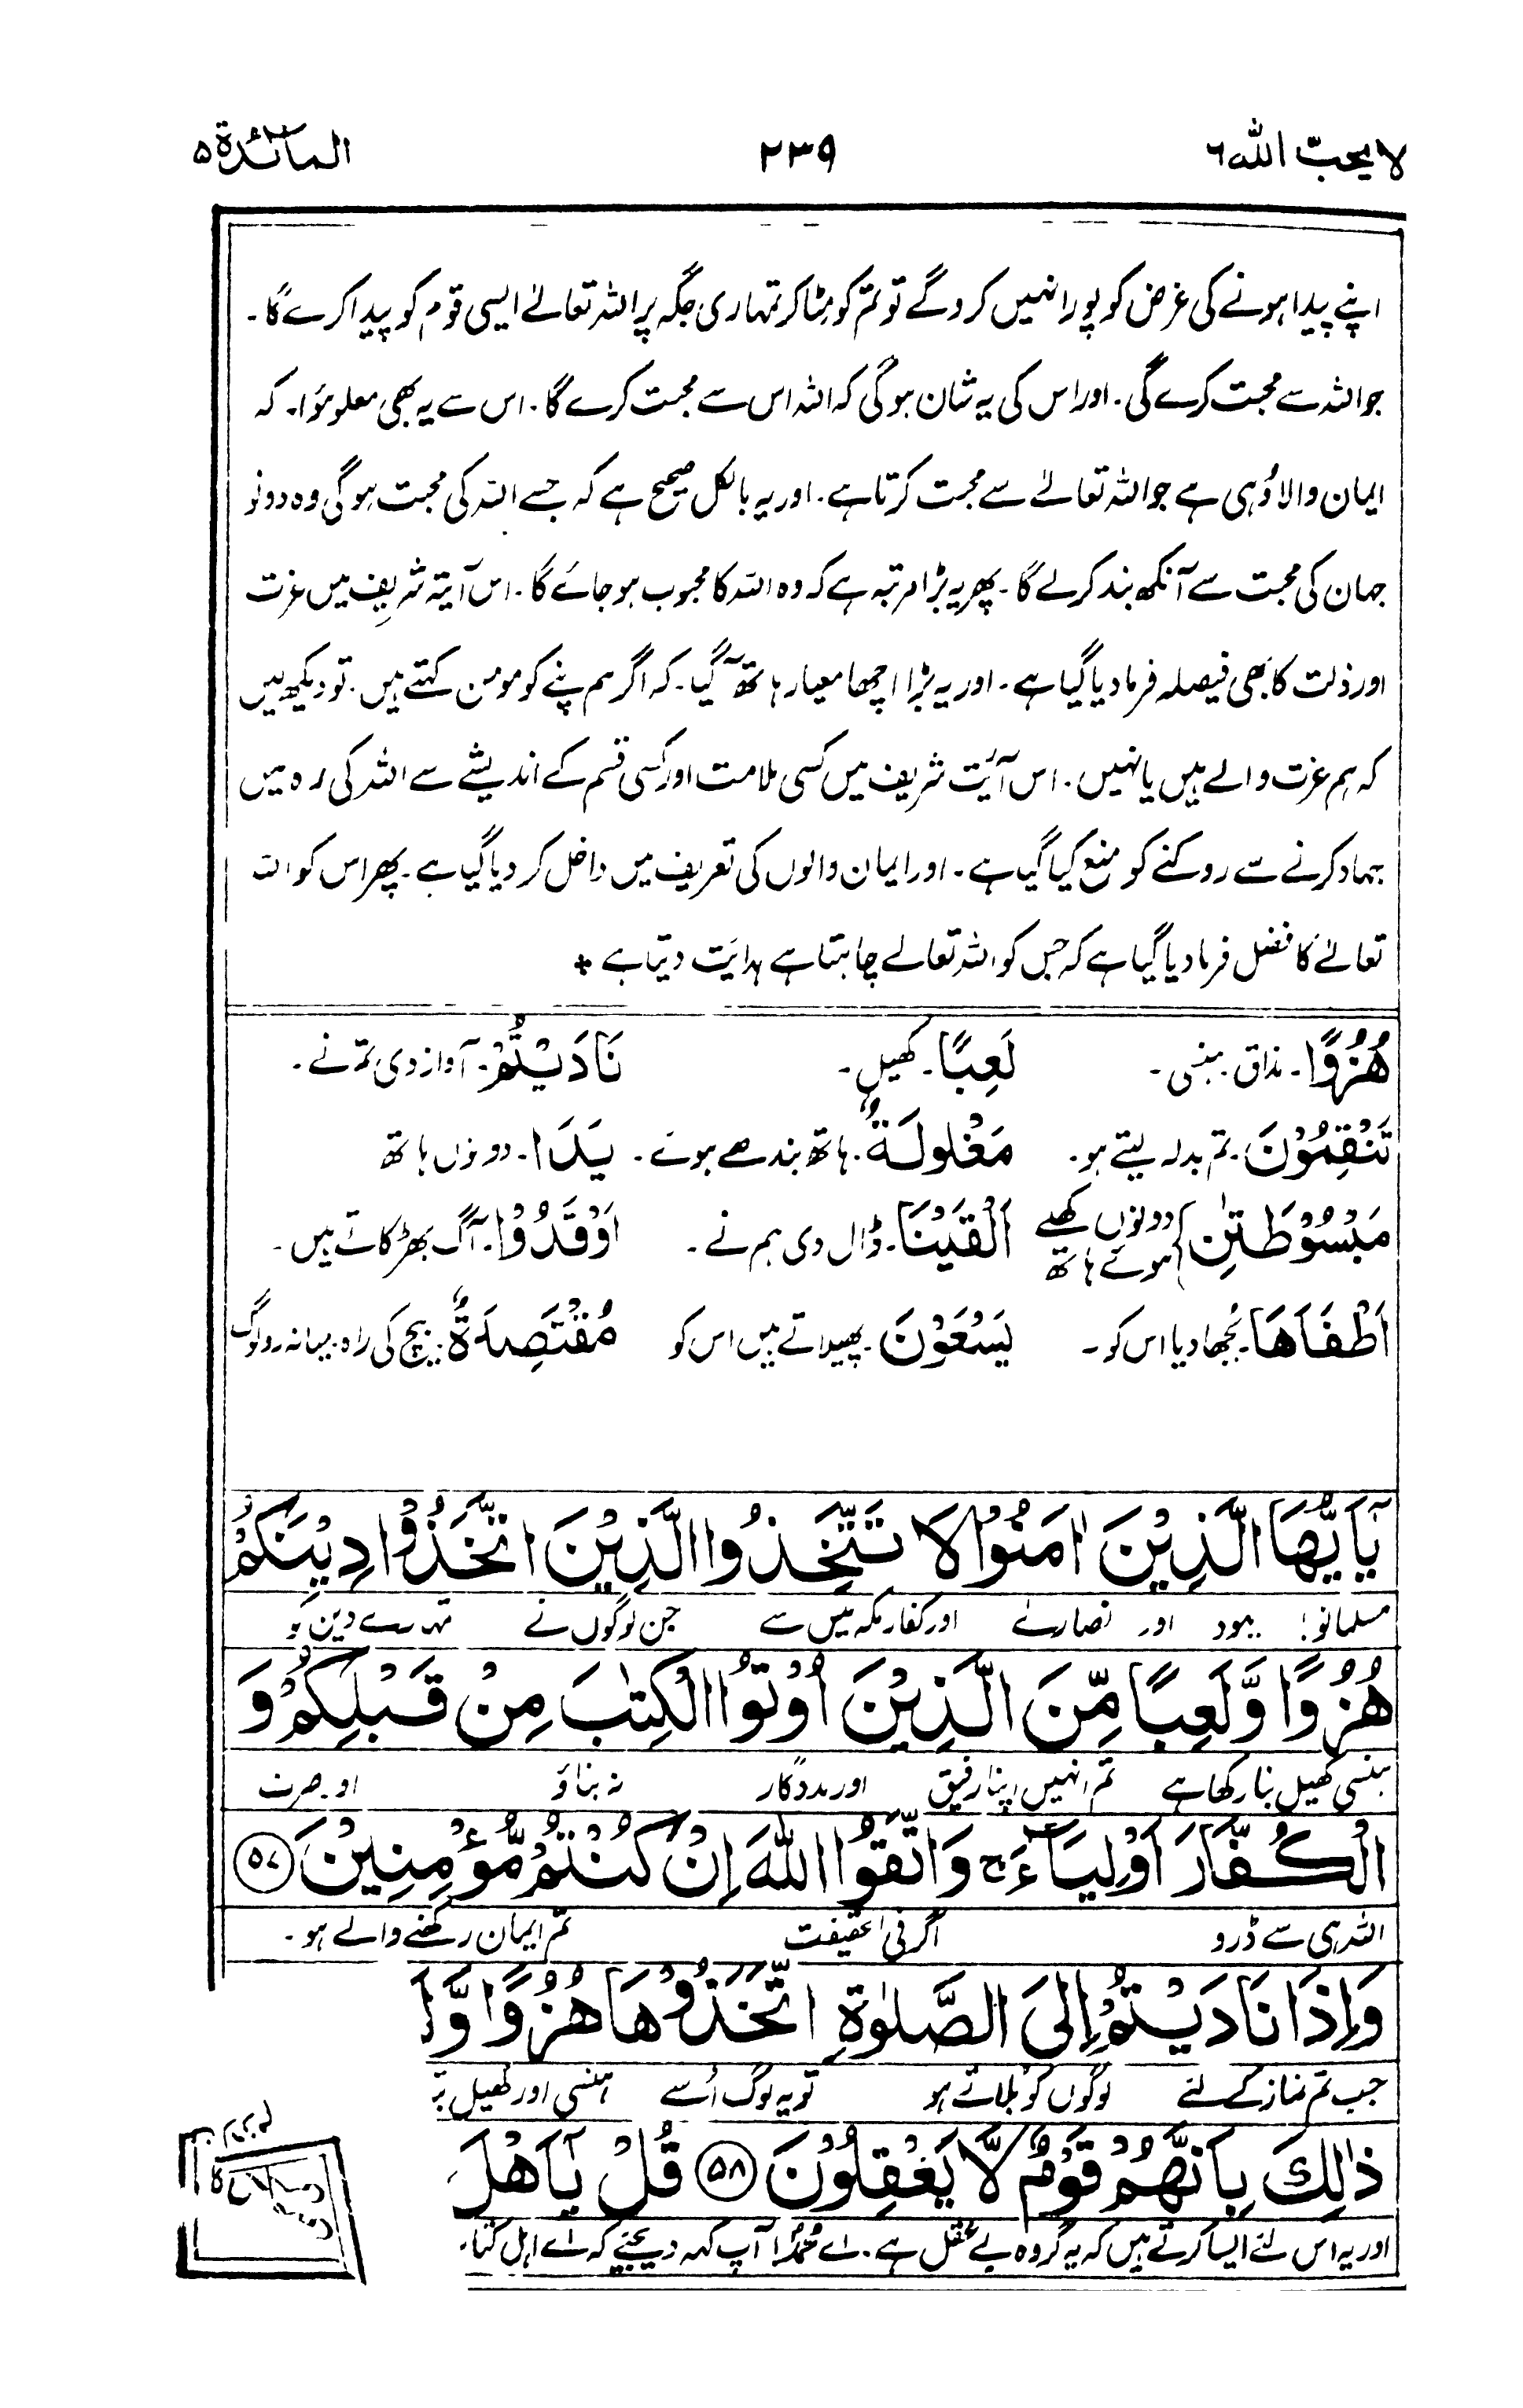 لا یحبّ اللہ ٦
٢٣٩
المآئدة ۵
اپنے پیدا ہونے کی غرض کو پورا نہیں کرو گے تو تم کو مٹا کر تمہاری جگہ پر اللہ تعالےٰ ایسی قوم کو پیدا کرے گا۔
جو اللہ سے محبت کرے گی۔ اور اس کی یہ شان ہو گی کہ اللہ اس سے محبت کرے گا۔ اس سے یہ بھی معلوم ہوٗا۔ کہ
ایمان والا وُہی ہے جو اللہ تعالےٰ سے محبت کرتا ہے۔ اور یہ بالکل صحیح ہے کہ جسے اللہ کی محبت ہو گی وہ دونو
جہان کی محبت سے آنکھ بند کر لے گا۔ پھر یہ بڑا مرتبہ ہے کہ وہ اللہ کا محبوب ہو جائے گا۔ اس آیۃ شریف میں عزت
اور ذلت کا بھی فیصلہ فرما دیا گیا ہے۔ اور یہ بڑا اچھا معیار ہاتھ آ گیا۔ کہ اگر ہم اپنے کو مومن کہتے ہیں۔ تو دیکھ لیں
کہ ہم عزت والے ہیں یا نہیں۔ اس آیٔت شریف میں کسی ملامت اور کسی قسم کے اندیشے سے اللہ کی رہ میں
جہاد کرنے سے روکنے کو منع کیا گیا ہے۔ اور ایمان والوں کی تعریف میں داخل کر دیا گیا ہے۔ پھر اس کو اللہ
تعالےٰ کا فضل فرما دیا گیا ہے کہ جس کو اللہ تعالےٰ چاہتا ہے ہدایٔت دیتا ہے +
هُزُوًا۔ مذاق۔ ہنسی۔ لَعِبًا۔ کھیل۔ نَادَيْتُمْ۔ آواز دی تم نے۔
تَنْقِمُوْنَ۔ تم بدلہ لیتے ہو۔ مَغْلُولَةٌ۔ ہاتھ بندھے ہوئے۔ يَدَا۔ دونوں ہاتھ
مَبْسُوْطَتٰنِ دونوں کھلے ہوئے ہاتھ اَلْقَيْنَا۔ ڈال دی ہم نے۔ اَوْقَدُوْا۔ آگ بھڑکاتے ہیں۔
اَطْفَاَهَا۔ بُجھا دیا اس کو۔ يَسْعَوْنَ۔ پھیلاتے ہیں اس کو مُقْتَصِدَةٌ۔ بیچ کی راہ۔ میانہ رو لوگ
يٰۤاَيُّهَا الَّذِيْنَ اٰمَنُوْا لَا تَتَّخِذُوا الَّذِيْنَ اتَّخَذُوْا دِيْنَكُمْ
مسلمانو! یہود اور نصاریٰ اور کفار مکہ میں سے جن لوگوں نے تمہارے دین کو
هُزُوًا وَّلَعِبًا مِّنَ الَّذِيْنَ اُوْتُوا الْكِتٰبَ مِنْ قَبْلِكُمْ وَ
ہنسی کھیل بنا رکھا ہے تم انہیں اپنا رفیق اور مددگار نہ بناؤ اور صرف
الْكُفَّارَ اَوْلِيَآءَ ۚ وَاتَّقُوا اللّٰهَ اِنْ كُنْتُمْ مُّؤْمِنِيْنَ ۵۷
اللہ ہی سے ڈرو اگر فی الحقیقت تم ایمان رکھنے والے ہو۔
وَاِذَا نَادَيْتُمْ اِلَى الصَّلٰوةِ اتَّخَذُوْهَا هُزُوًا وَّلَ
جب تم نماز کے لئے لوگوں کو بلاتے ہو تو یہ لوگ اُسے ہنسی اور کھیل بنا
ذٰلِكَ بِاَنَّهُمْ قَوْمٌ لَّا يَعْقِلُوْنَ ۵۸ قُلْ يٰۤاَهْلَ
اور یہ اس لئے ایسا کرتے ہیں کہ یہ گروہ بے عقل ہے۔ اے محمدؐ! آپ کہہ دیجئے کہ اے اہل کتاب